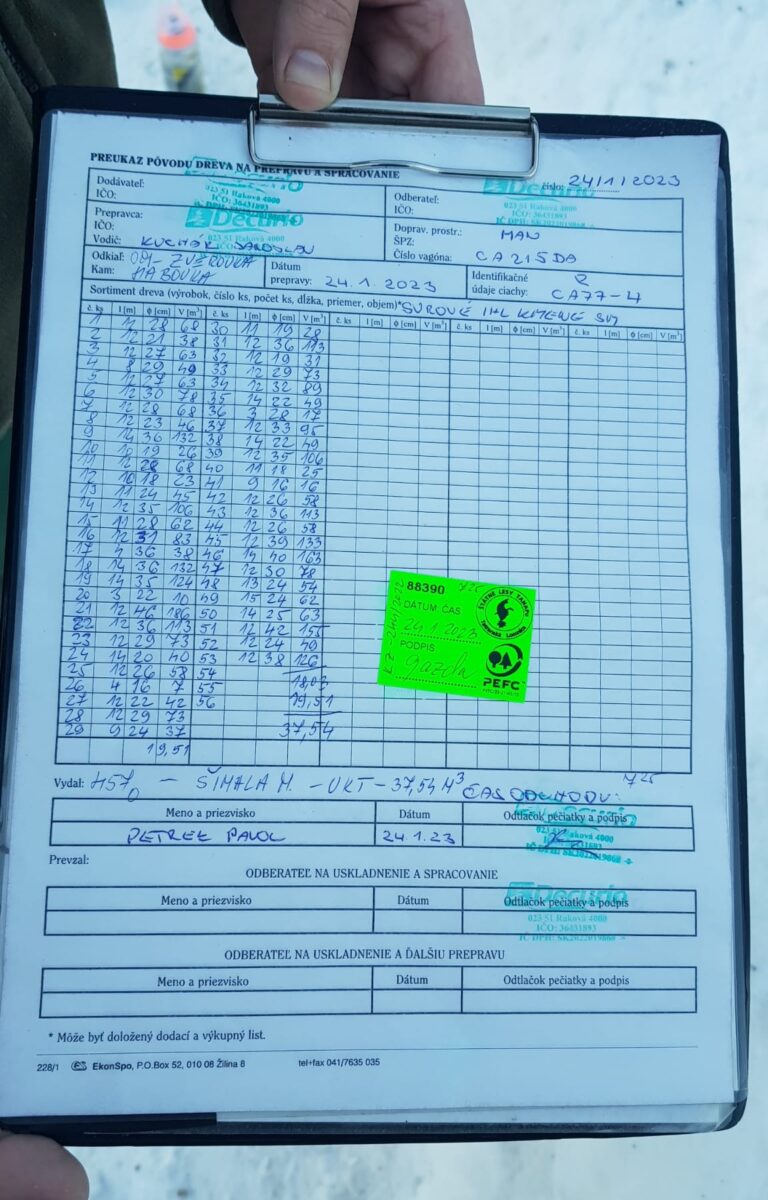 PREUKAZ PÔVODU DREVA NA PREPRAVU A SPRACOVANIE
číslo: 24/1/2023
Dodávateľ:
IČO:
023 51 Raková 4000
IČO: 36431893
Odberateľ:
IČO:
Decurio
023 51 Raková 4000
IČO: 36431893
Prepravca:
Vodič: KUCHÁR JAROSLAV
Decurio
023 51 Raková 4000
Doprav. prostr.: MAN
ŠPZ:
Číslo vagóna: CA215DA
Odkiaľ: OM-ZVEROVKA
Kam: HABOVKA
Dátum
prepravy: 24.1.2023
Identifikačné
údaje ciachy: CA77-4
Sortiment dreva (výrobok, číslo ks, počet ks, dĺžka, priemer, objem)* SUROVÉ IHL KMENE SM
č. ks l [m] φ [cm] V [m³] č. ks l [m] φ [cm] V [m³] č. ks l [m] φ [cm] V [m³] č. ks l [m] φ [cm] V [m³] č. ks l [m] φ [cm] V [m³]
1 11 28 68 30 11 19 28
2 12 21 38 31 12 36 113
3 12 27 63 32 12 19 31
4 8 29 49 33 12 29 73
5 12 27 63 34 12 32 89
6 12 30 78 35 14 22 49
7 12 28 68 36 3 28 17
8 12 23 46 37 12 33 95
9 14 36 132 38 14 22 49
10 10 19 26 39 12 35 106
11 12 28 68 40 11 18 25
12 10 18 23 41 9 16 16
13 11 24 45 42 12 26 58
14 12 35 106 43 12 36 113
15 11 28 62 44 12 26 58
16 12 31 83 45 12 39 133
17 4 36 38 46 14 40 163
18 14 36 132 47 12 30 78
19 14 35 124 48 13 24 54
20 3 22 10 49 15 24 62
21 12 46 186 50 14 25 63
22 12 36 113 51 12 42 155
23 12 29 73 52 12 24 49
24 14 20 40 53 12 38 126
25 12 26 58 54
26 4 16 7 55 18,03
27 12 22 42 56 19,51
28 12 29 73
29 9 24 37 37,54
19,51
88390 725
DÁTUM ČAS
24.1.2023
PODPIS
gazda
ŠTÁTNE LESY TANAPU
PEFC
Vydal: - ŠIMALA M. - UKT - 37,54 M³ ČAS ODCHODU: 725
Meno a priezvisko Dátum Odtlačok pečiatky a podpis
PETREK PAVOL 24.1.23
Prevzal:
ODBERATEĽ NA USKLADNENIE A SPRACOVANIE
Meno a priezvisko Dátum Odtlačok pečiatky a podpis
Decurio
023 51 Raková 4000
IČO: 36431893
ODBERATEĽ NA USKLADNENIE A ĎALŠIU PREPRAVU
Meno a priezvisko Dátum Odtlačok pečiatky a podpis
* Môže byť doložený dodací a výkupný list.
228/1 EkonSpo, P.O.Box 52, 010 08 Žilina 8 tel+fax 041/7635 035